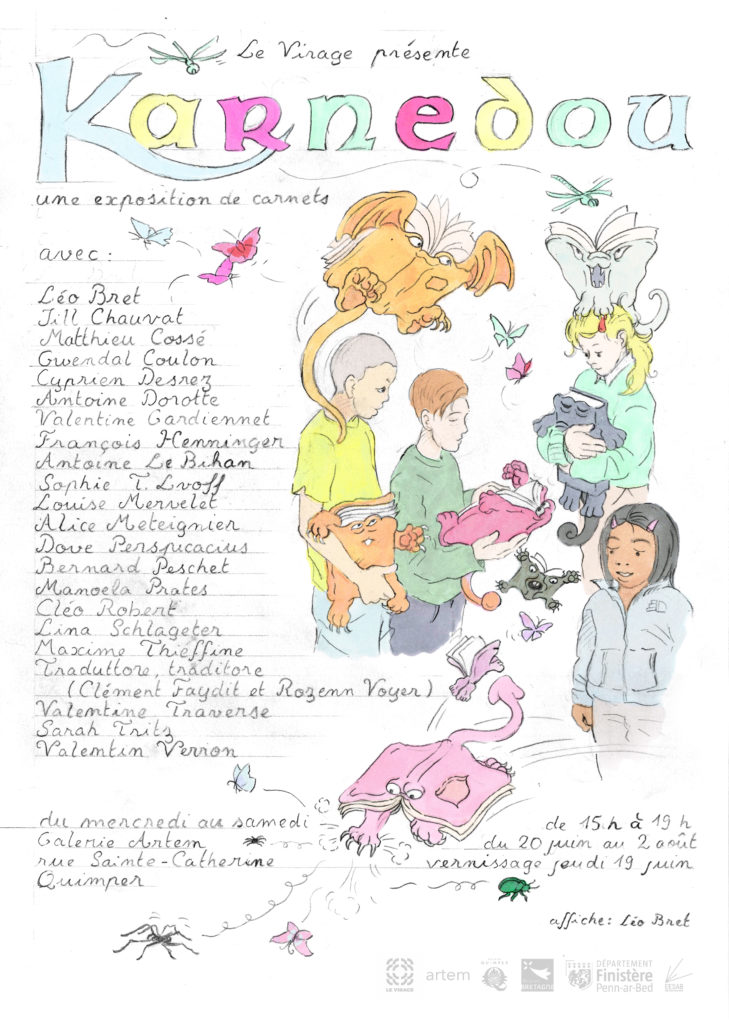 Le Virage présente
Karnedou
une exposition de carnets
avec :
Léo Bret
Jill Chauvat
Matthieu Cossé
Gwendal Coulon
Cyprien Desrez
Antoine Dorotte
Valentine Gardiennet
François Henninger
Antoine Le Bihan
Sophie T. Lvoff
Louise Mervelet
Alice Meteignier
Dove Perspicacius
Bernard Peschet
Manoela Prates
Cléo Robert
Lina Schlageter
Maxime Thieffine
Traduttore, traditore
(Clément Faydit et Rozenn Voyer)
Valentine Traverse
Sarah Tritz
Valentin Verron
du mercredi au samedi
Galerie Artem
rue Sainte-Catherine
Quimper
de 15 h à 19 h
du 20 juin au 2 août
vernissage jeudi 19 juin
affiche : Léo Bret
LE VIRAGE
artem
BRETAGNE
DÉPARTEMENT
Finistère
Penn-ar-Bed